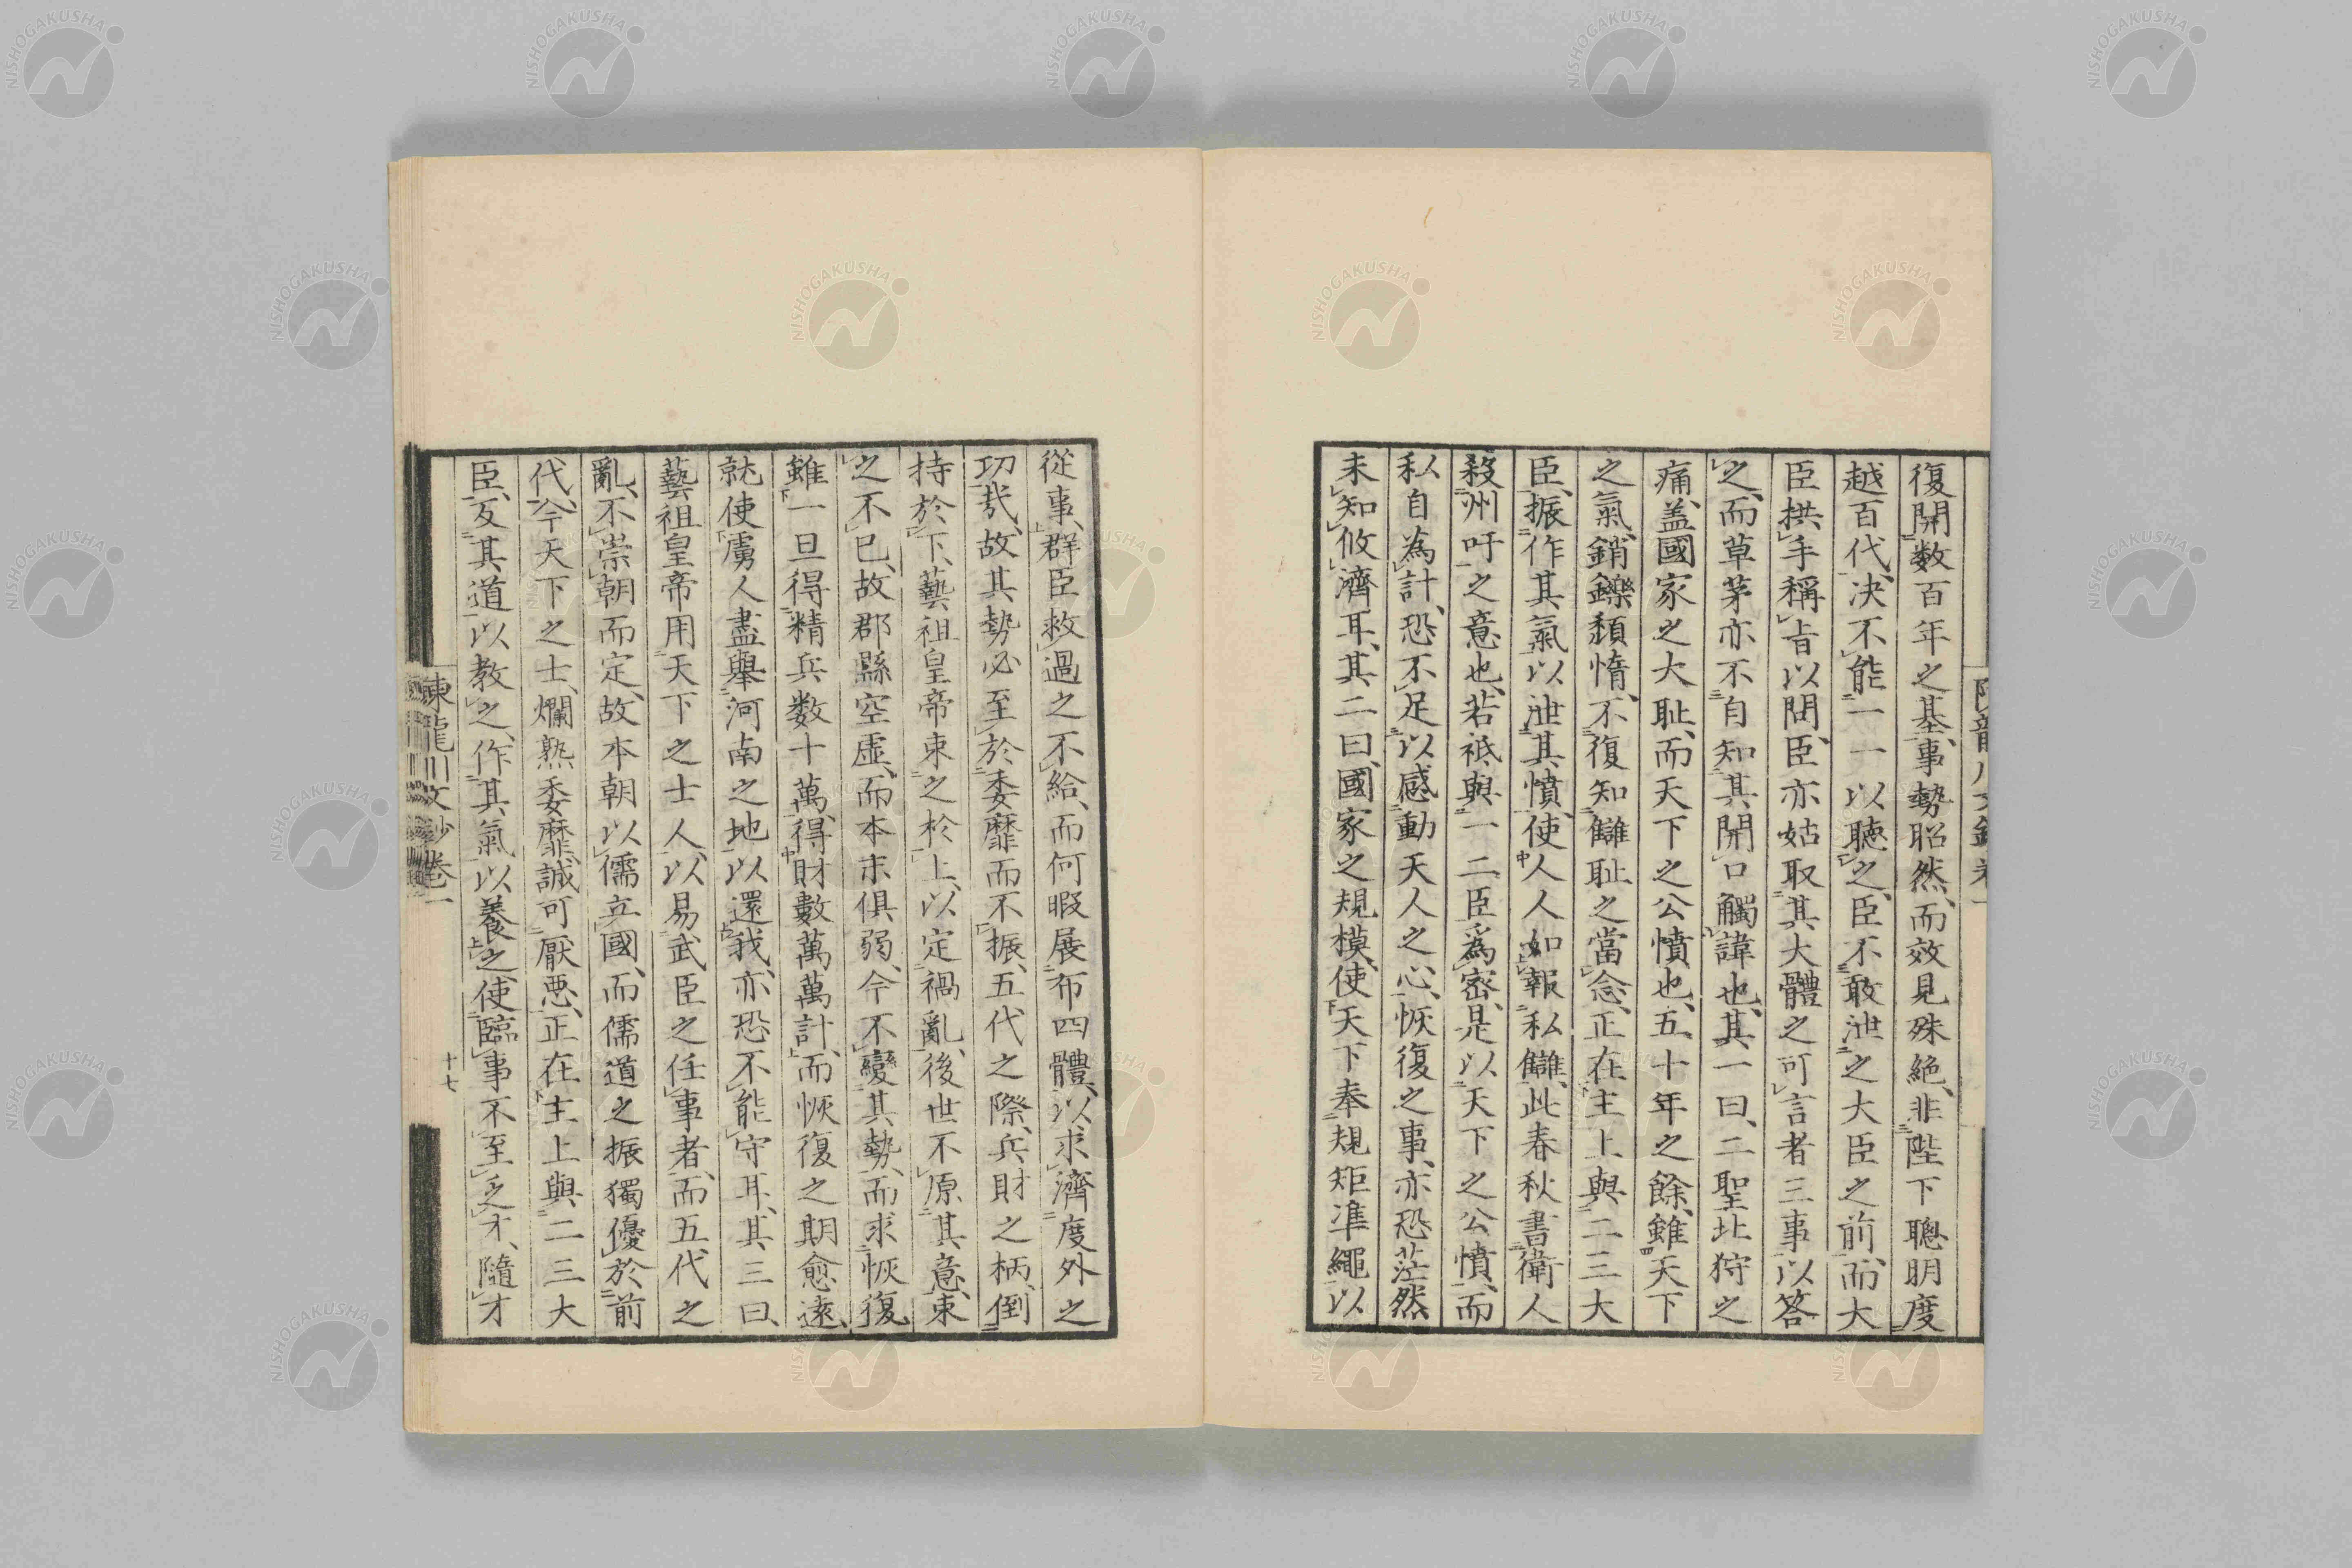 復開数百年之基、事勢昭然、而效見殊絶、非陛下聰明度
越百代、決不能一一以聽之、臣不敢泄之大臣之前、而大
臣拱手稱旨以問、臣亦姑取其大體之可言者三事以答
之、而草茅亦不自知其開口觸諱也、其一曰、二聖北狩之
痛、盖國家之大恥、而天下之公憤也、五十年之餘、雖天下
之氣、銷鑠頽惰、不復知讎恥之當念、正在主上與二三大
臣、振作其氣以泄其憤、使人人如報私讎、此春秋書衛人
殺州吁之意也、若祗與一二臣爲密、是以天下之公憤、而
私自為計、恐不足以感動天人之心、恢復之事、亦恐茫然
未知攸濟耳、其二曰、國家之規模、使天下奉規矩準繩以
從事、群臣救過之不給、而何暇展布四體、以求濟度外之
功哉、故其勢必至於委靡而不振、五代之際、兵財之柄、倒
持於下、藝祖皇帝束之於上、以定禍亂、後世不原其意、束
之不已、故郡縣空虛、而本末俱弱、今不變其勢、而求恢復
雖一旦得精兵数十萬、得財數萬萬計、而恢復之期愈遠、
就使虜人盡舉河南之地以還我、亦恐不能守耳、其三曰、
藝祖皇帝用天下之士人、以易武臣之任事者、而五代之
亂、不崇朝而定、故本朝以儒立國、而儒道之振獨優於前
代、今天下之士、爛熟委靡、誠可厭惡、正在主上與二三大
臣、反其道以教之、作其氣以養之、使臨事不至乏才、隨才
陳龍川文鈔卷一
十七